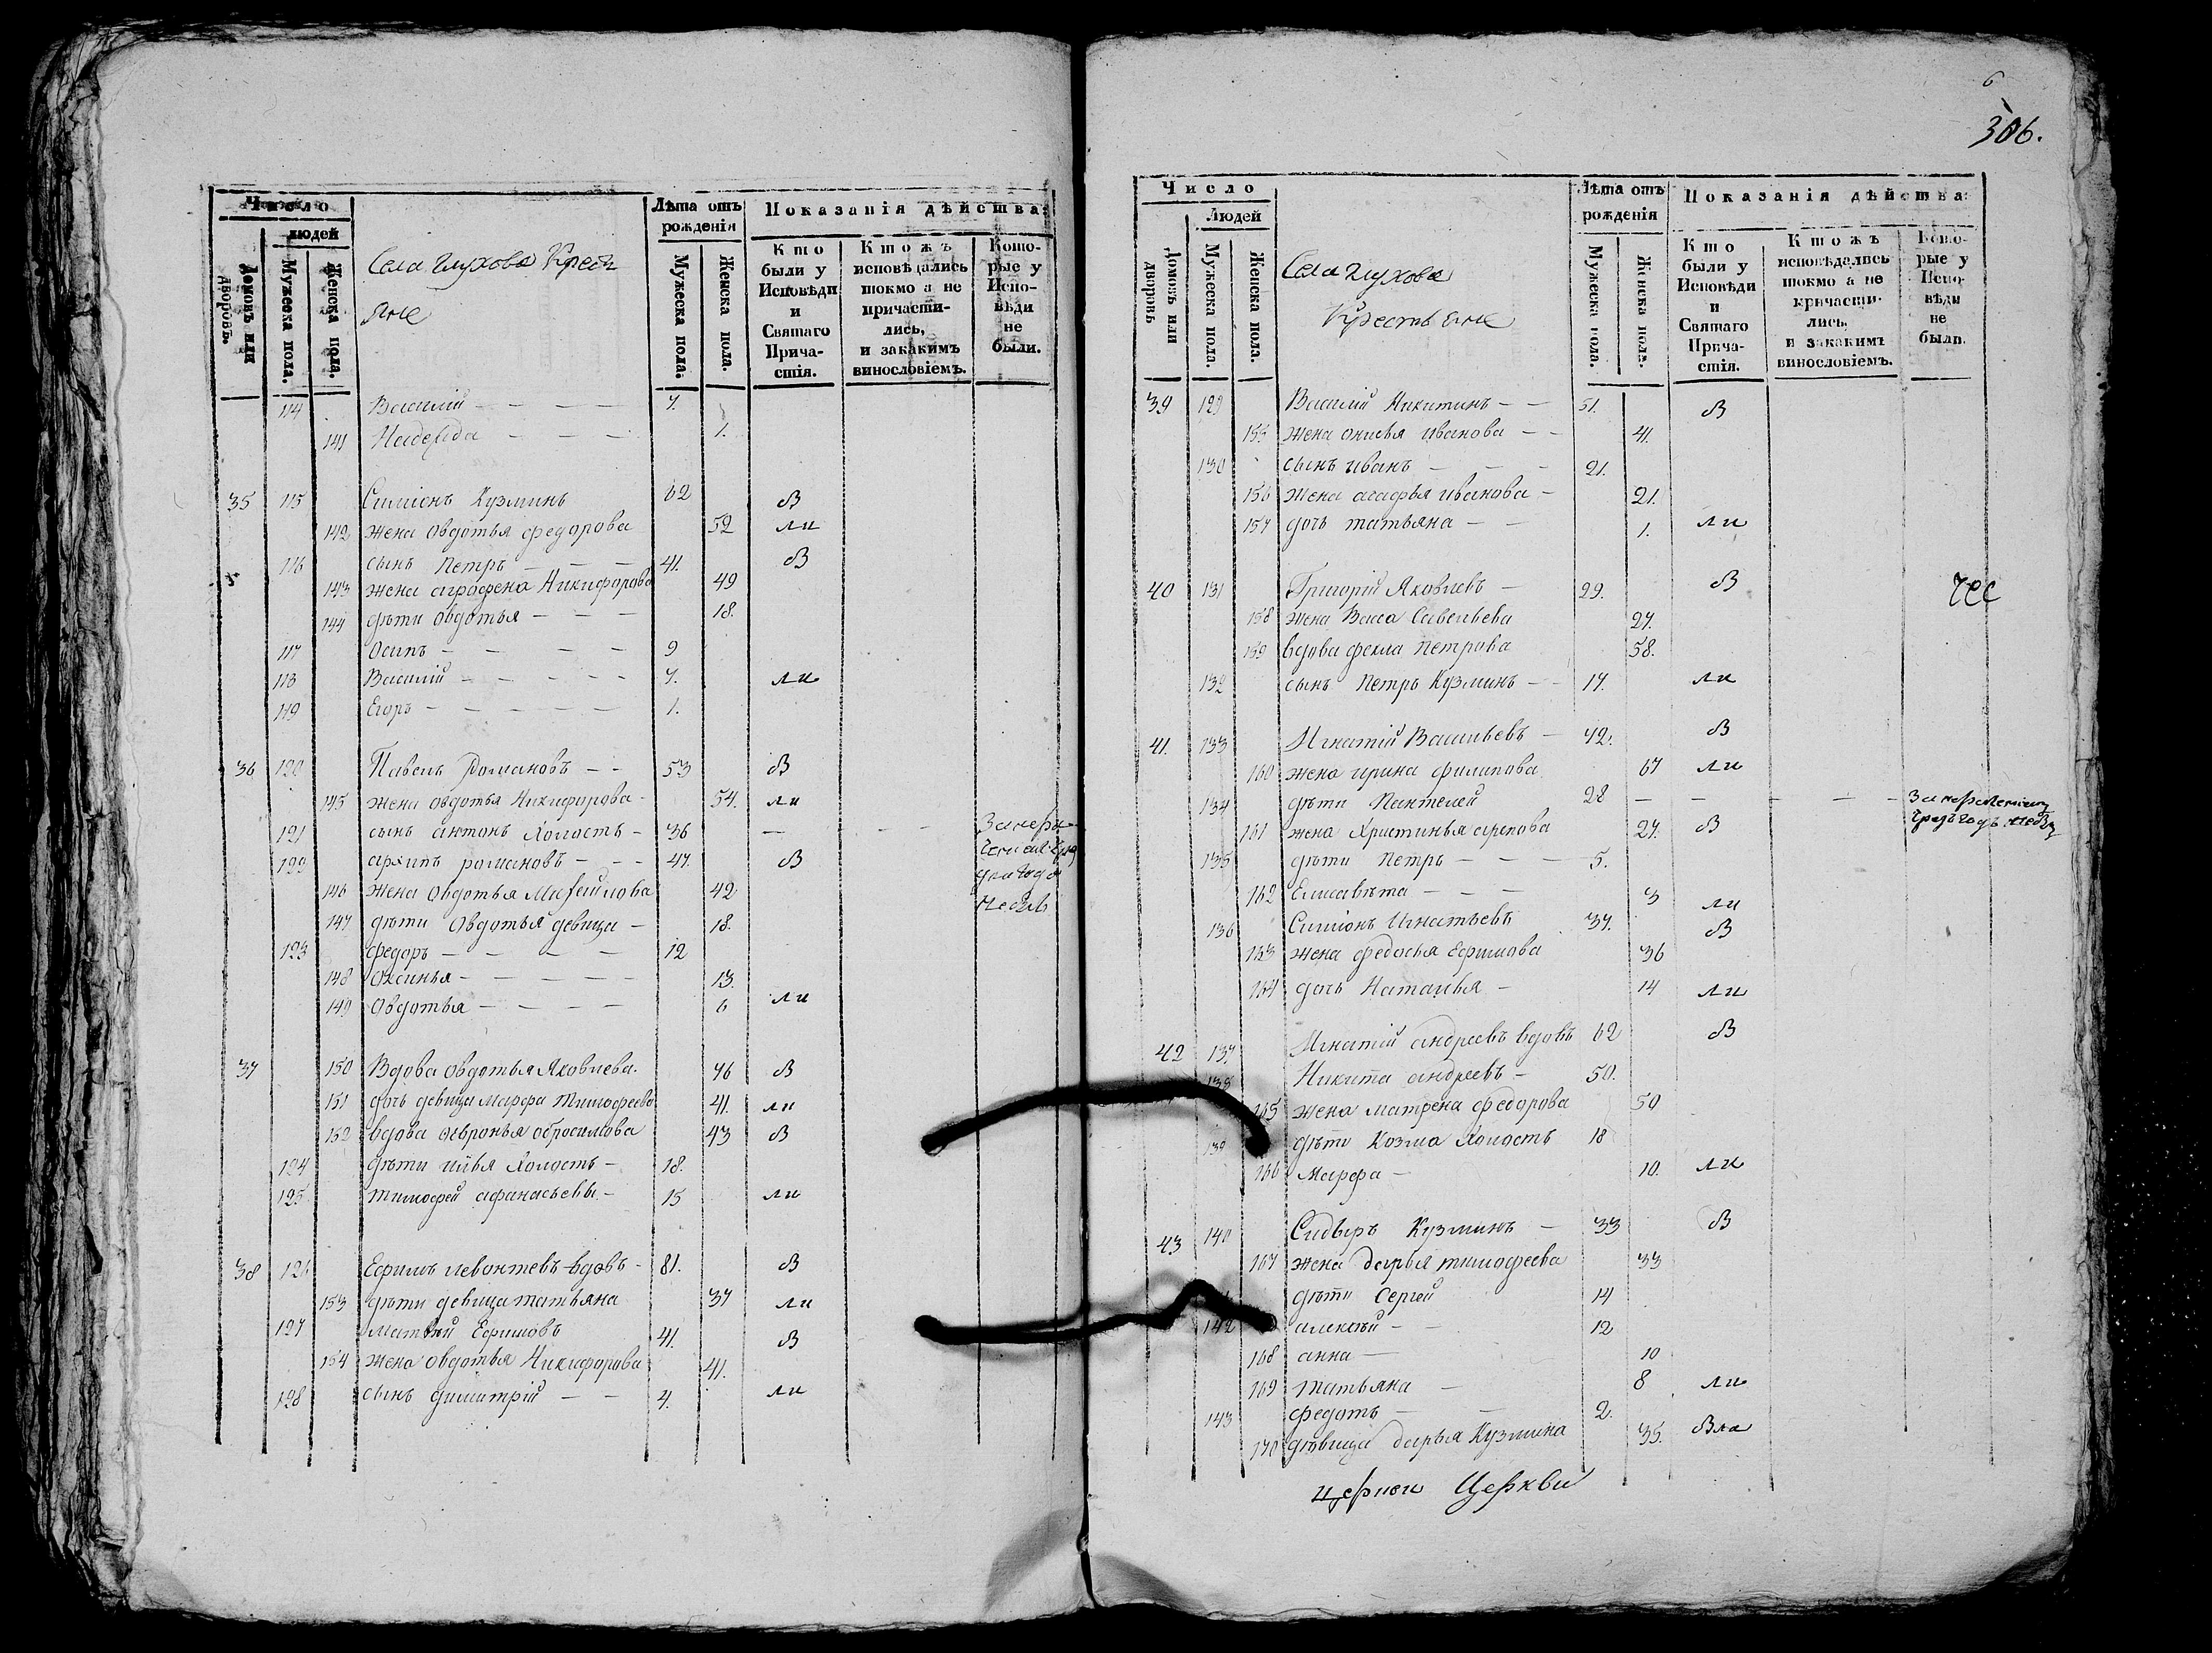 Число
людей
Домовъ или дворовъ.
Мужеска пола.
Женска пола.
Села Глухова Крестъ
яне
Лѣта отъ рожденія
Мужеска пола.
Женска пола.
Показанія дѣйства:
Кто были у Исповѣди и Святаго Причастія.
Ктожъ исповѣдались токмо а не причасти-лись, и закакимъ винословіемъ.
Кото-рые у Испо-вѣди не были.
114 Василій — — — — 7.
141 Надежда — — — 1.
35 115 Симіонъ Кузминъ 62 в
142 жена Овдотья федорова 52 ли
116 сынъ Петръ — — — 41. в
143 жена аграфена Никифорова 49
144 дѣти Овдотья — — — 18.
117 Осипъ — — — — 9
118 Василій — — — — — 7. ли
119 Егоръ — — — — — 1.
36 120 Павелъ Романовъ — — 53 в
145 жена овдотья Никифорова - 54. ли
121 сынъ антонъ Холостъ — 36 — — —
122 архипъ романовъ — - - 47. в
146 жена Овдотья Михайлова 42
147 дѣти Овдотья девица — 18.
123 федоръ — — — — 12
148 Оксинья — — — — — 13.
149 Овдотья — — — — 6 ли
37 150 Вдова Овдотья Яковлева. 76 в
151 дочь девица марфа Тимофеева 41. ли
152 вдова февронья обросимова 43 в
124 дѣти илья Холостъ — 18.
125 тимофей афанасьевы — 15 ли
38 126 Ефимъ левонтевъ вдовъ - 81. в
153 дѣти девица татьяна 37 ли
127 матвѣй Ефимовъ 41. в
154 жена овдотья Никифорова 41.
128 сынъ димитрій — — 4. ли
6
306.
Число
Людей
Домовъ или дворовъ
Мужеска пола.
Женска пола.
Села Глухова
Крестьяне
Лѣта отъ рожденія
Мужеска пола.
Женска пола.
Показанія дѣйства:
Кто были у Исповѣди и Святаго Прича-стія.
Ктожъ исповѣдались токмо а не причасти-лись, и закакимъ винословіемъ.
Кото-рые у Испо-вѣди не были.
39 129 Василій Никитинъ — — 51. в
155 жена онисья иванова — - 41.
130 сынъ иванъ — — - 21.
156 жена агафья иванова — 21.
157 дочь татьяна — — 1. ли
40 131 Григорій Яковлевъ — 29. в
158 жена Васса Савельева 27.
159 вдова фекла петрова 58.
132 сынъ Петръ Кузминъ — - 17. ли
41. 133 Игнатій Васильевъ — 72. в
160 жена ирина филипова 67 ли
134 дѣти Пантелей 28 — — — —
161 жена Христинья 27. в
135 дѣти Петръ — — — 5.
162 Елисавѣта — — — 3 ли
136 Симіонъ Игнатьевъ 37. в
163 жена федосья Ефимова 36
164 дочь Наталья — 14 ли
42 137 Игнатій андреевъ вдовъ 62 в
138 Никита андреевъ — 50.
165 жена матрена федорова 50
139 дѣти Козма Холостъ 18
166 Марфа — 10. ли
43 140 Кузминъ — 33 в
167 жена дарья тимофеева 33
дѣти Сергей 14
142 алексѣй — — 12
168 анна — 10
169 татьяна — 8 ли
143 федотъ — — 2.
170 дѣвица дарья Кузмина 35. вла
Церкви